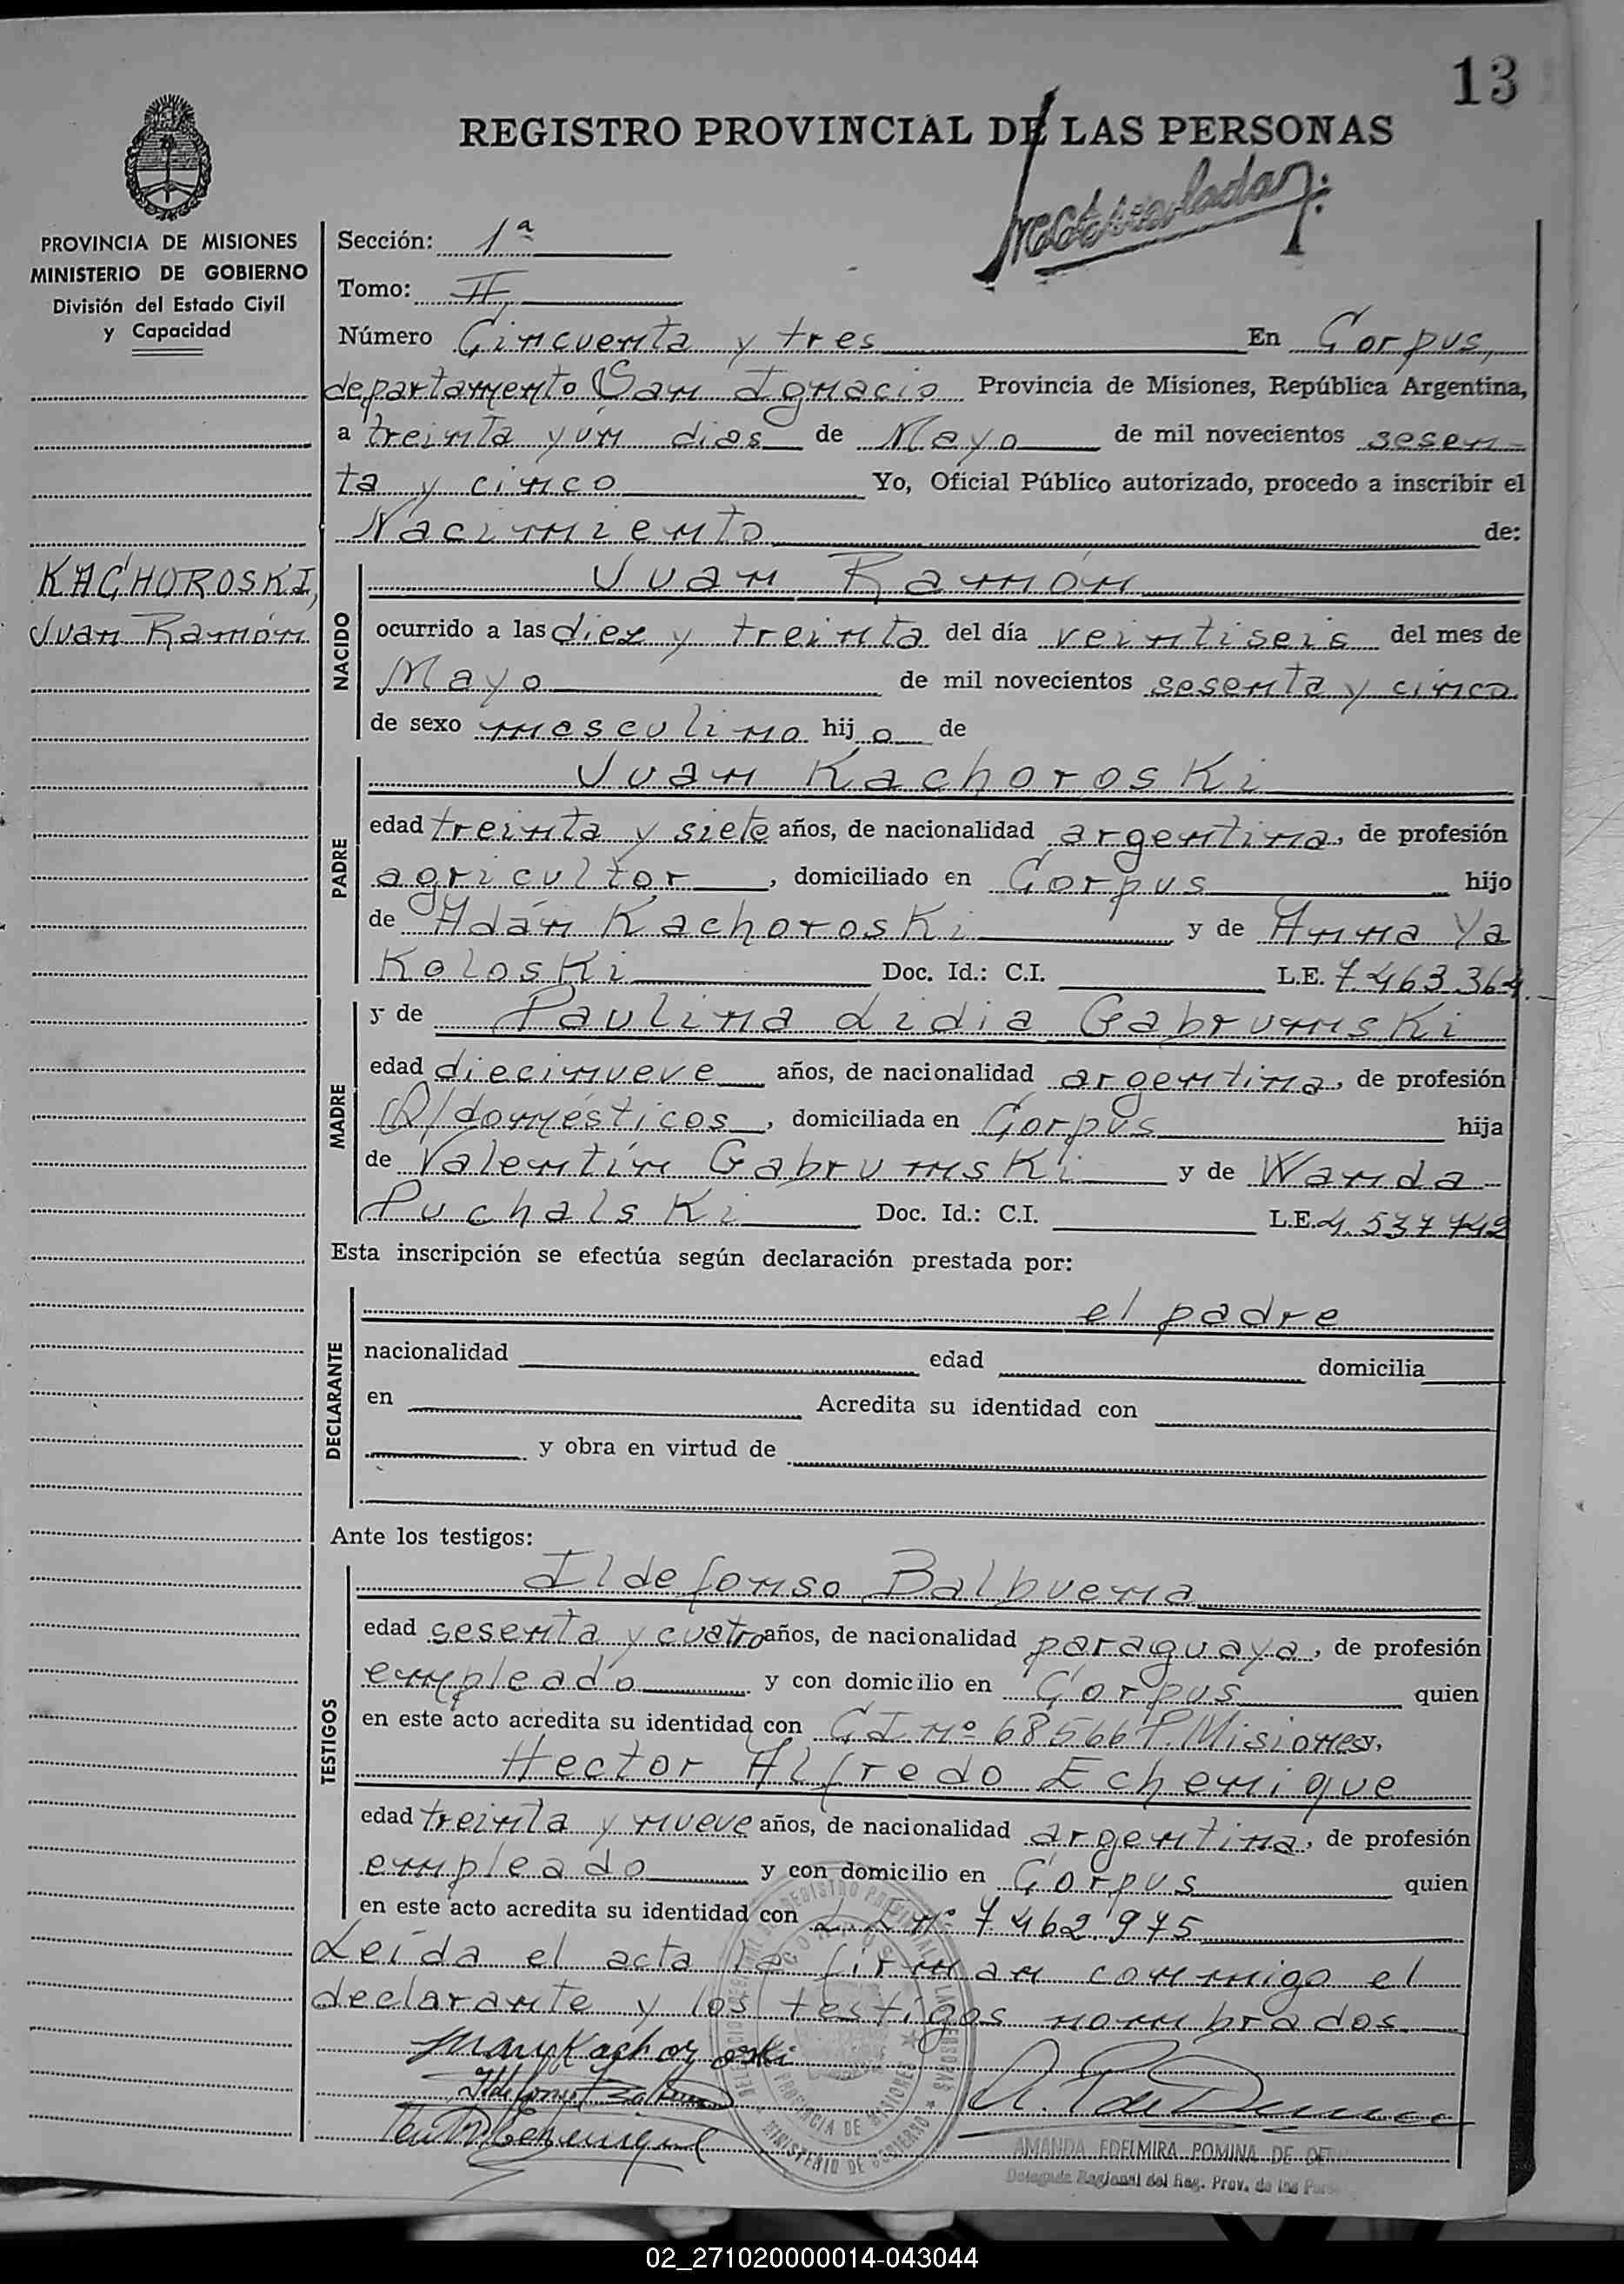 13
REGISTRO PROVINCIAL DE LAS PERSONAS
PROVINCIA DE MISIONES
MINISTERIO DE GOBIERNO
División del Estado Civil
y Capacidad
KACHOROSKI,
Juan Ramón
Sección: 1ª
Tomo: II
Número Cincuenta y tres En Corpus,
departamento San Ignacio Provincia de Misiones, República Argentina,
a treinta y un días de Mayo de mil novecientos sesen
ta y cinco Yo, Oficial Público autorizado, procedo a inscribir el
Nacimiento de:
NACIDO
Juan Ramón
ocurrido a las diez y treinta del día veintiseis del mes de
Mayo de mil novecientos sesenta y cinco
de sexo masculino hijo de
PADRE
Juan Kachoroski
edad treinta y siete años, de nacionalidad argentina, de profesión
agricultor, domiciliado en Corpus hijo
de Adán Kachoroski y de Anna Ya
Koloski Doc. Id.: C.I. L.E. 7.463.364.-
MADRE
y de Paulina Lidia Gabrumski
edad diecinueve años, de nacionalidad argentina, de profesión
Q/domésticos, domiciliada en Corpus hija
de Valentín Gabrumski y de Wanda
Puchalski Doc. Id.: C.I. L.E. 4.537.742
Esta inscripción se efectúa según declaración prestada por:
DECLARANTE
el padre
nacionalidad edad domicilia
en Acredita su identidad con
y obra en virtud de
Ante los testigos:
TESTIGOS
Ildefonso Balbuena
edad sesenta y cuatro años, de nacionalidad paraguaya, de profesión
empleado y con domicilio en Corpus quien
en este acto acredita su identidad con C.I. nº 68566 P. Misiones y,
Hector Alfredo Echenique
edad treinta y nueve años, de nacionalidad argentina, de profesión
empleado y con domicilio en Corpus quien
en este acto acredita su identidad con L.E. nº 7.462.975
Leída el acta la firman conmigo el
declarante y los testigos nombrados.
Juan Kachoroski
AMANDA EDELMIRA POMINA DE
Delegada Regional del Reg. Prov. de las
CORPUS
PROVINCIA DE MISIONES
MINISTERIO DE GOBIERNO
02_271020000014-043044